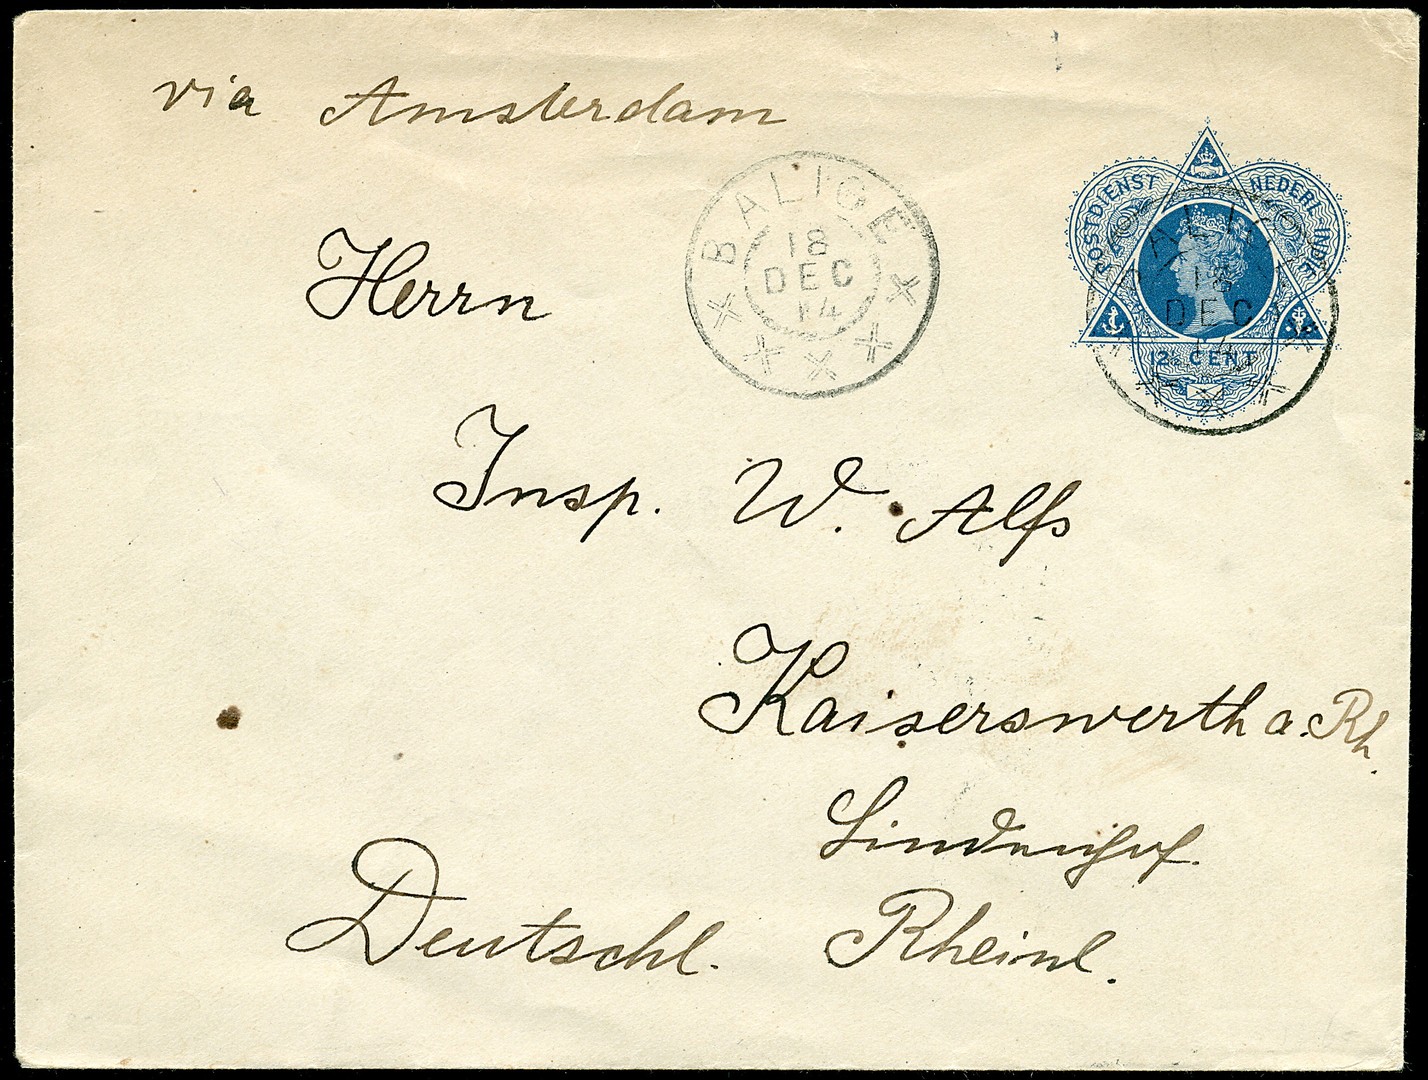 via Amsterdam
BALIGE
18
DEC
14
POSTDIENST NEDERL-INDIE
BALIGE
18
DEC
14
12½ CENT
Herrn
Insp. W. Alfs
Kaiserswerth a. Rh.
Lindenhof.
Deutschl. Rheinl.